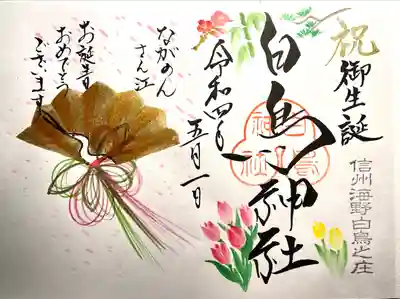 祝
御生誕
信州海野白鳥之庄
白鳥神社
令和四年
五月一日
ながのん
さん江
お誕生日
おめでとう
ございます